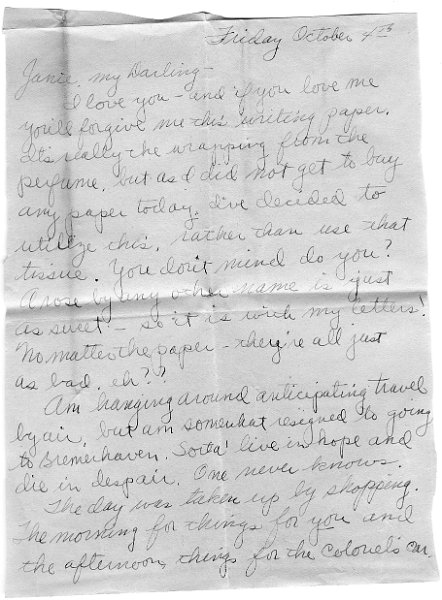 Friday October 4th
Janie, my Darling -
I love you - and if you love me
you'll forgive me this writing paper.
It's really the wrapping from the
perfume, but as I did not get to buy
any paper today, I've decided to
utilize this, rather than use that
tissue. You don't mind do you?
A rose by any other name is just
as sweet - so it is with my letters!
No matter the paper - they're all just
as bad, eh??
Am hanging around anticipating travel
by air, but am somewhat resigned to going
to Bremerhaven. Sorta' live in hope and
die in despair. One never knows.
The day was taken up by shopping.
The morning for things for you and
the afternoon, things for the Colonel's car,